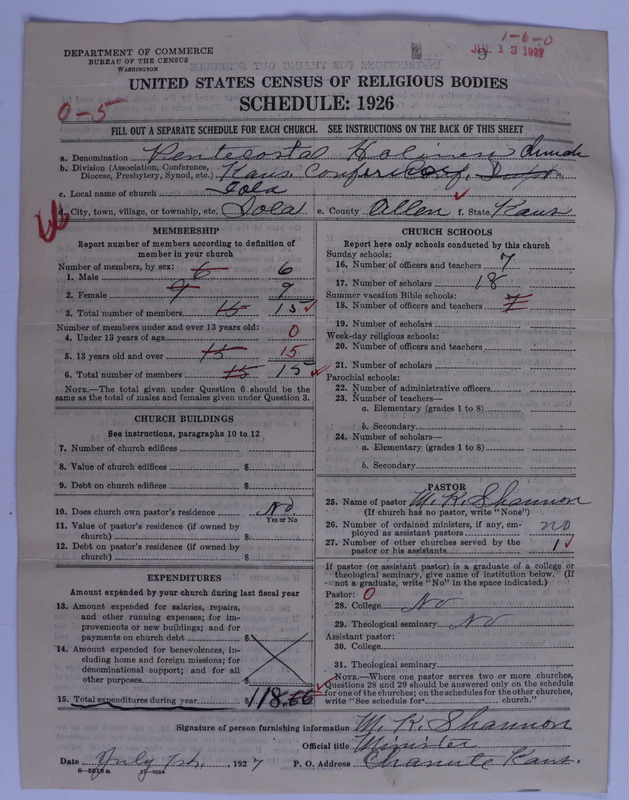 1-6-0
DEPARTMENT OF COMMERCE
BUREAU OF THE CENSUS
WASHINGTON
9
JUL 13 1927
UNITED STATES CENSUS OF RELIGIOUS BODIES
SCHEDULE: 1926
0-5
FILL OUT A SEPARATE SCHEDULE FOR EACH CHURCH. SEE INSTRUCTIONS ON THE BACK OF THIS SHEET
a. Denomination Pentecostal Holiness Church
b. Division (Association, Conference, Diocese, Presbytery, Synod, etc.) Kans. Conf.
c. Local name of church Iola
d. City, town, village, or township, etc. Iola e. County Allen f. State Kans
MEMBERSHIP
Report number of members according to definition of member in your church
Number of members, by sex:
1. Male 6 6
2. Female 9 9
3. Total number of members 15 15
Number of members under and over 13 years old:
4. Under 13 years of age 0
5. 13 years old and over 15 15
6. Total number of members 15 15
NOTE.—The total given under Question 6 should be the same as the total of males and females given under Question 3.
CHURCH BUILDINGS
See instructions, paragraphs 10 to 12
7. Number of church edifices
8. Value of church edifices $
9. Debt on church edifices $
10. Does church own pastor's residence No.
Yes or No
11. Value of pastor's residence (if owned by church) $
12. Debt on pastor's residence (if owned by church) $
EXPENDITURES
Amount expended by your church during last fiscal year
13. Amount expended for salaries, repairs, and other running expenses; for improvements or new buildings; and for payments on church debt $
14. Amount expended for benevolences, including home and foreign missions; for denominational support; and for all other purposes $
15. Total expenditures during year $118.66
CHURCH SCHOOLS
Report here only schools conducted by this church
Sunday schools:
16. Number of officers and teachers 7
17. Number of scholars 18
Summer vacation Bible schools:
18. Number of officers and teachers 7
19. Number of scholars
Week-day religious schools:
20. Number of officers and teachers
21. Number of scholars
Parochial schools:
22. Number of administrative officers
23. Number of teachers—
a. Elementary (grades 1 to 8)
b. Secondary
24. Number of scholars—
a. Elementary (grades 1 to 8)
b. Secondary
PASTOR
25. Name of pastor M. R. Shannon
(If church has no pastor, write "None")
26. Number of ordained ministers, if any, employed as assistant pastors no
27. Number of other churches served by the pastor or his assistants 1
If pastor (or assistant pastor) is a graduate of a college or theological seminary, give name of institution below. (If not a graduate, write "No" in the space indicated.)
Pastor: 0
28. College No
29. Theological seminary No
Assistant pastor:
30. College
31. Theological seminary
NOTE.—Where one pastor serves two or more churches, Questions 28 and 29 should be answered only on the schedule for one of the churches; on the schedules for the other churches, write "See schedule for church."
Signature of person furnishing information M. R. Shannon
Official title Minister
Date July 1st, 1927 P. O. Address Chanute Kans.